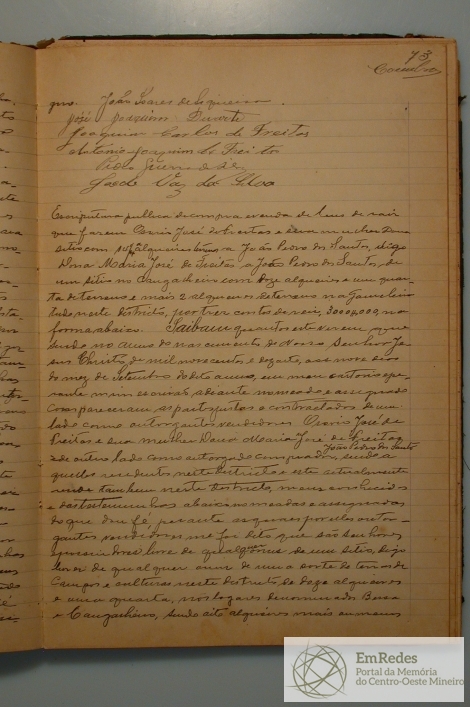 73
João Soares de Siqueira.
José Joaquim Duarte
Joaquim Carlos de Freitas
Antonio Joaquim de Freitas
Pedro Guerra de Sá
Vaz da Silva
Escriptura publica de compra e venda de bens de raiz
que fazem José de Freitas e sua mulher Dona
a João Pedro dos Santos, digo
Dona Maria José de Freitas a João Pedro dos Santos, de
um sitio no com doze alqueires e uma quar-
ta de terras e mais 2 alqueires de terras na
tudo neste districto, por tres contos de reis, 3:000$000, na
forma abaixo. Saibam quantos este virem que
sendo no anno do nascimento de Nosso Senhor Je-
sus Christo, de mil novecentos e dezoito, aos nove dias
do mez de Setembro do dito anno, em meu cartorio pe-
rante mim escrivão adiante nomeado e assignado
compareceram as partes justas e contractadas de um
lado como outorgantes vendedores José de
Freitas e sua mulher Dona Maria José de Freitas
e de outro lado como outorgado comprador, João Pedro dos Santos sendo
aquelles residentes neste districto e este actualmente
tambem neste districto, meus conhecidos
e das testemunhas abaixo nomeadas e assignadas
do que dou fé, perante as quaes por elles outor-
gantes vendedores me foi dito que são senhores
e possuidores livre de qualquer onus de um sitio, digo
de qualquer onus de uma sorte de terras de
Campos e culturas neste districto de doze alqueires
e uma quarta, nos logares denominados
e sendo oito alqueires mais ou menos
EmRedes
Portal da Memória
do Centro-Oeste Mineiro